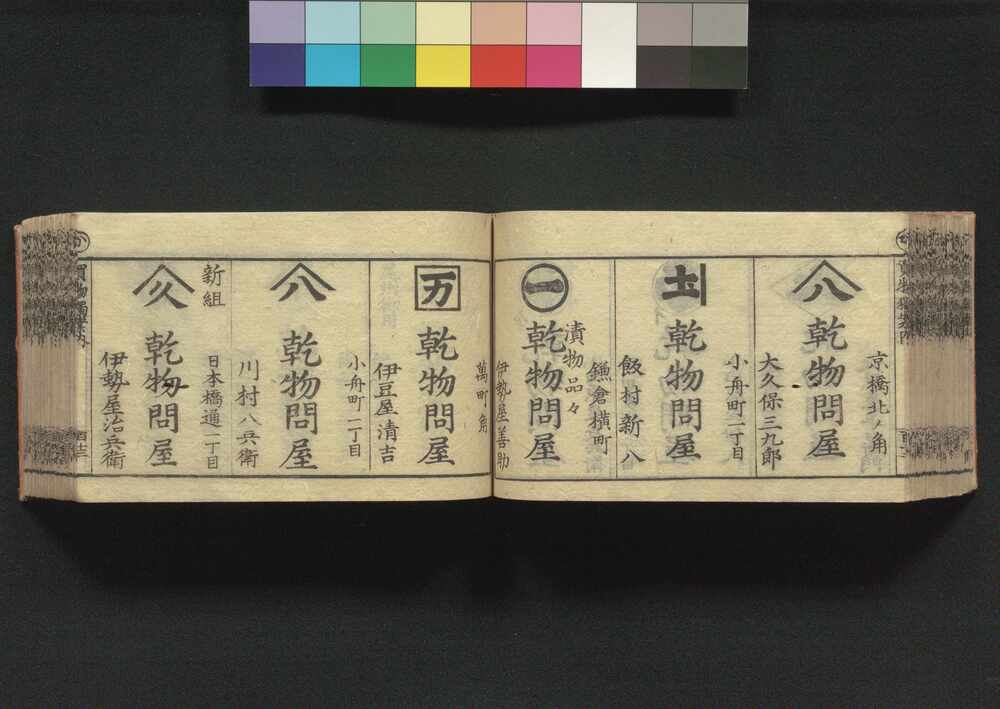 京橋北ノ角
八
乾物問屋
大久保三九郎
小舟町一丁目
土
乾物問屋
飯村新八
鎌倉横町
漬物品々
一
乾物問屋
伊勢屋善助
萬町角
万
乾物問屋
伊豆屋清吉
小舟町二丁目
八
乾物問屋
川村八兵衛
新組
日本橋通一丁目
久
乾物問屋
伊勢屋治兵衛